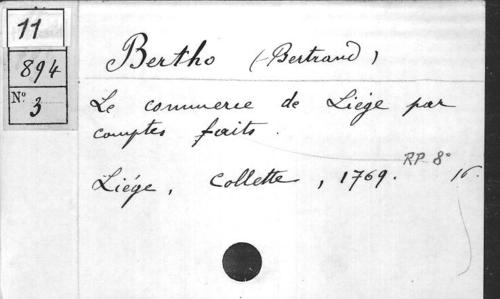 11
894
N° 3
Bertho (Bertrand)
Le commerce de Liége par
comptes faits.
RP 8°
Liége, Collette, 1769. 16.